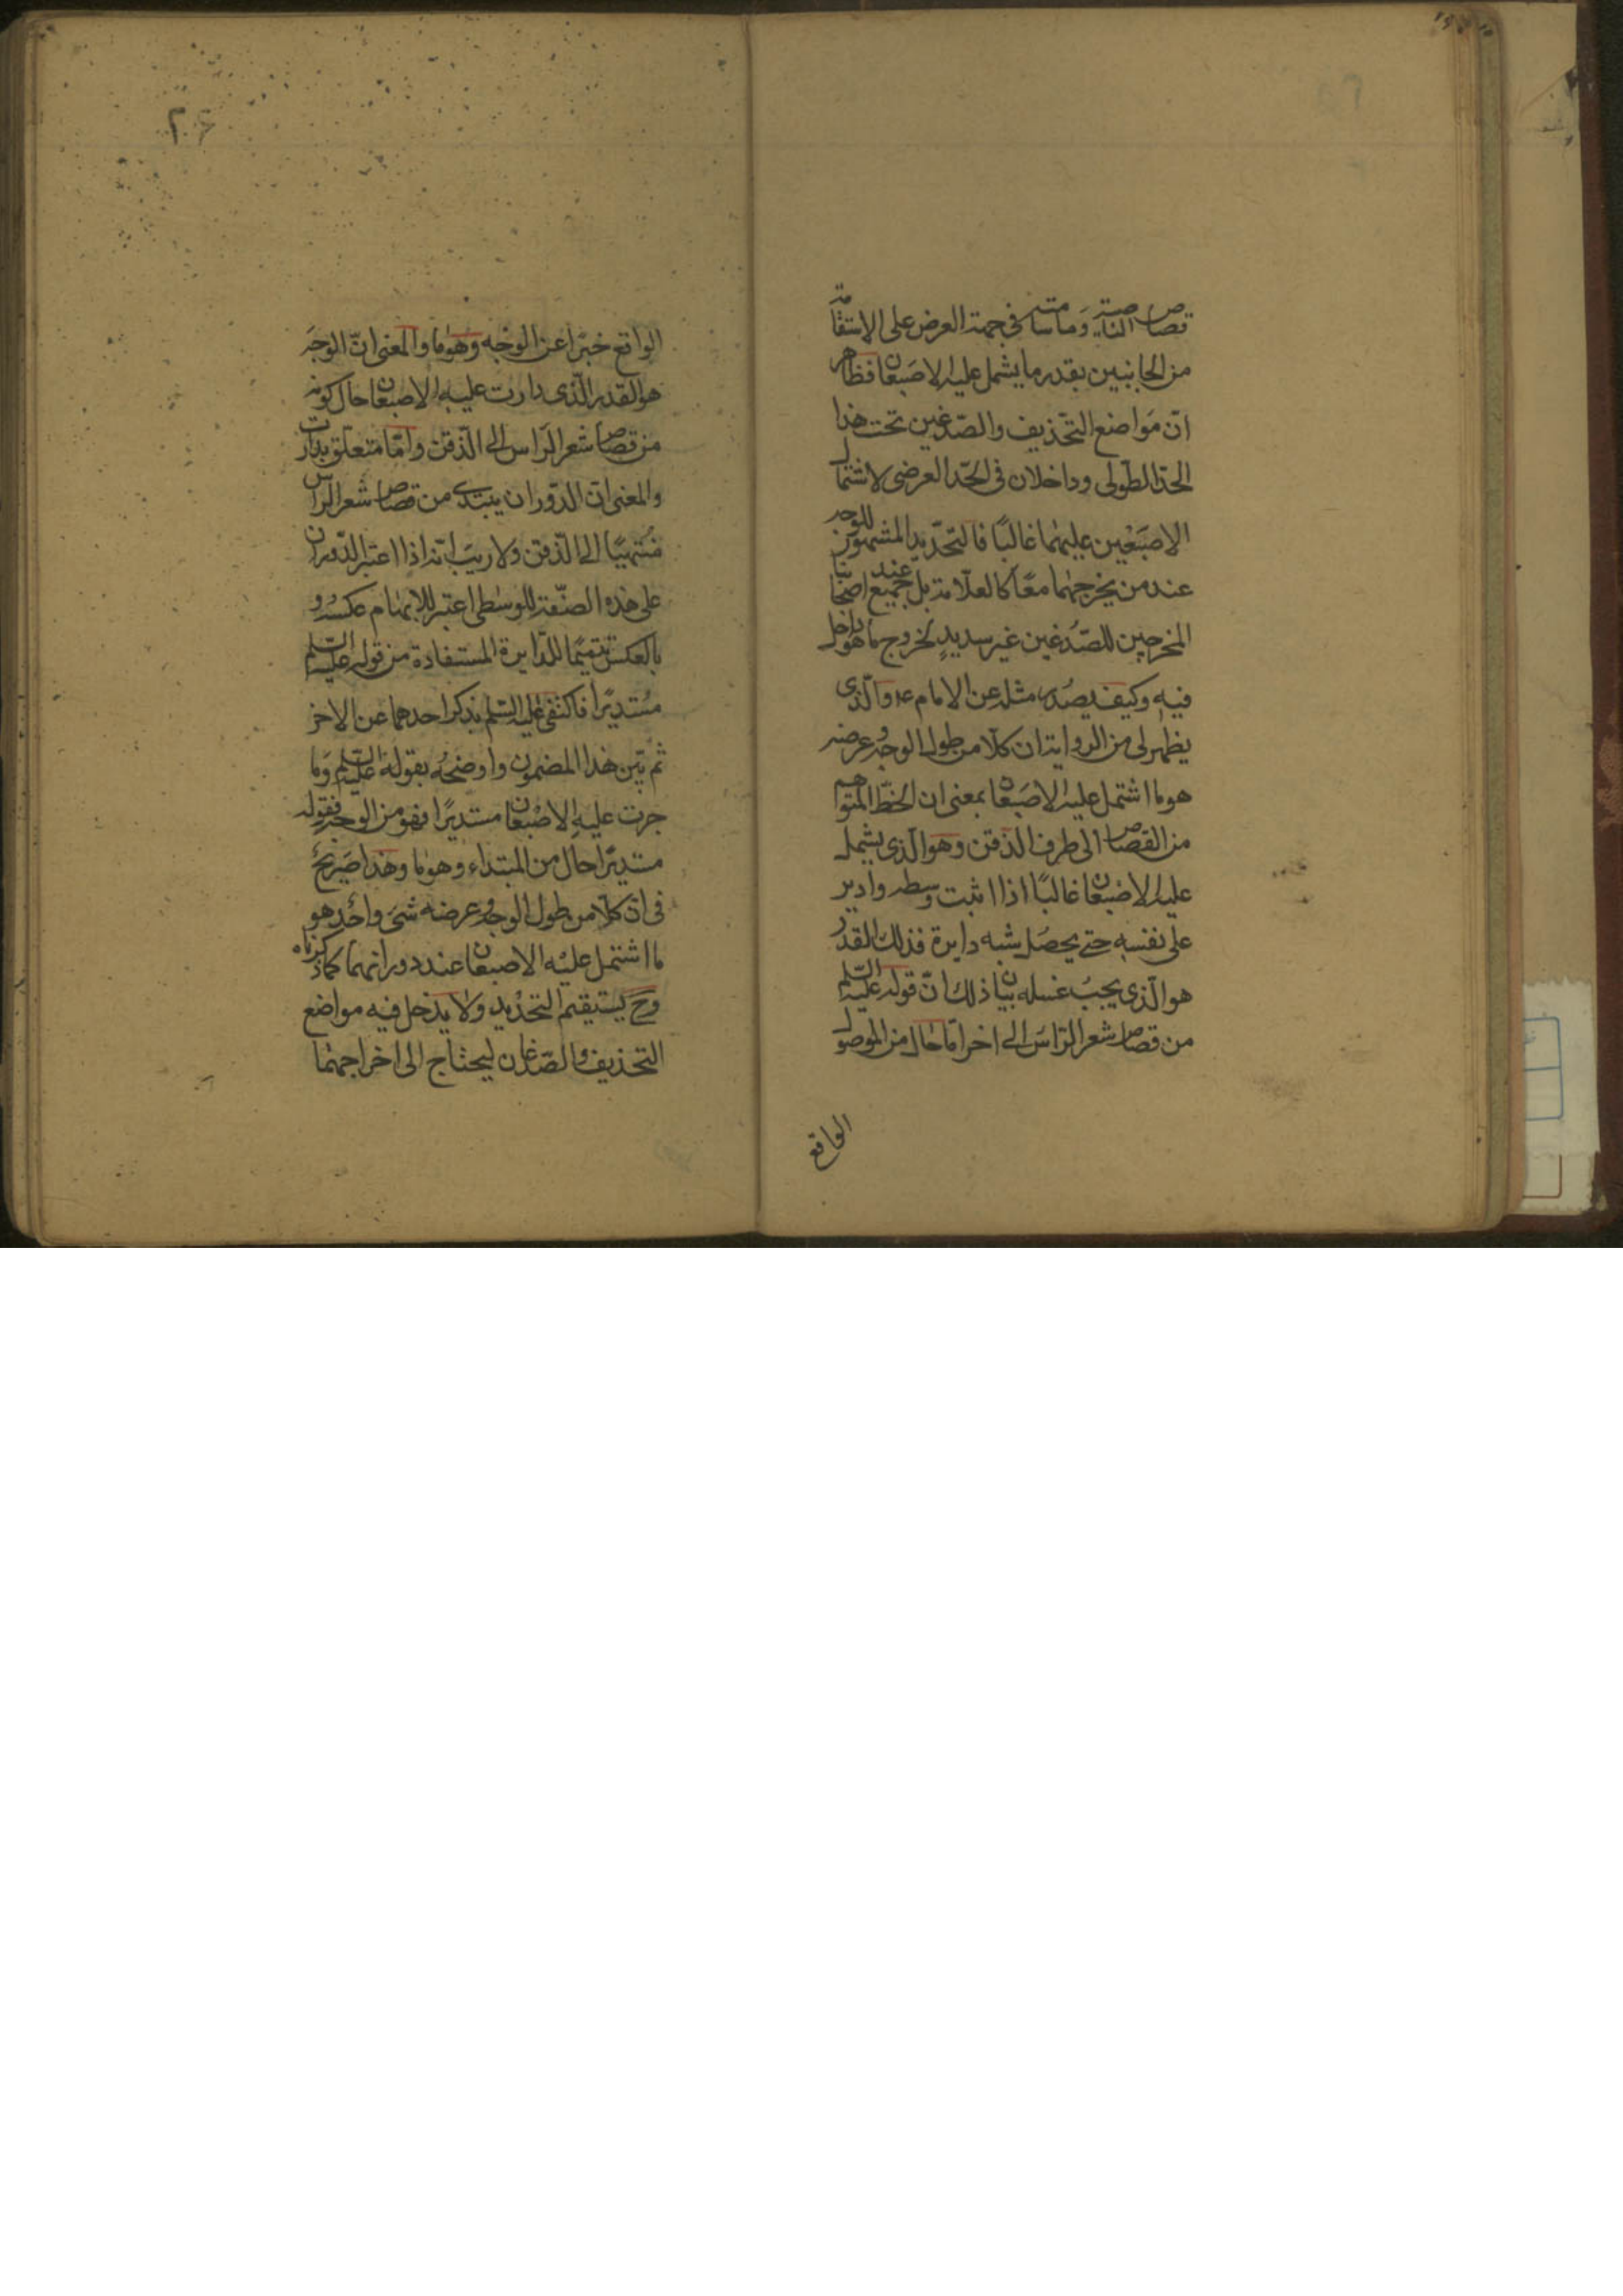 قصاص الناصية وما سامته فى جهة العرض على الاستقامة
من الجانبين بقدر ما يشمل عليه الاصبعان فظاهر
انّ مَواضع التّحذيف والصّدغين تحت هذا
الحدّ الطّولى وداخلان فى الحدّ العرضى لاشتمال
الاصبَعْين عليهما غالبًا فالتحديد المشهور للوجه
عند من يخرجهما معًا كالعلّامة بل عند جميع اصحابنا
المخرجين للصّدغين غير سديدٍ لخروج ما هو داخل
فيه وكيف يصدر مثله عن الامام ع والّذى
يظهر لى من الرواية ان كلّا من طول الوجه وعرضه
هو ما اشتمل عليه الاصبَعان بمعنى ان الخطّ المتوهم
من القصاص الى طرف الذقن وهو الّذى يشمله
عليه الاصبعان غالبًا اذا اثبت وسطه وادير
على نفسه حتى يحصل شبه دايرة فذلك القدر
هو الّذى يجبُ غسله بيان ذلك انّ قوله عليه السّلم
من قصاص شعر الرّاس الى اخر امّا حال من الموصول
الواقع
۲۶
الواقع خبرًا عن الوَجْه وهو ما والمعنى انّ الوجَه
هو القدر الّذى دارت عليه الاصبعان حال كونه
من قصاص شعر الرّاس الى الذّقن وامّا متعلّق بدارت
والمعنى انّ الدّوران يبتدى من قصاص شعر الرّاس
مُنتهيًا الى الذّقن ولا ريبَ انّه اذا اعتبر الدّوران
على هذه الصّفة للوسطى اعتبر للابهام عكسه و
بالعكس تتميمًا للدّايرة المستفادة من قوله عليه السّلم
مُستديرًا فاكتفى عليه السّلم بذكر احدهما عن الاخر
ثم بيّن هذا المضمون واوضحه بقوله عليه السّلم وما
جرت عليه الاصْبَعان مستديرًا فهو من الوجه فقوله
مستديرًا حال من المبتداء وهو ما وهذا صَريحٌ
فى انّ كلّا من طول الوجه وعرضه شىَ واحد هو
ما اشتمل عليْه الاصبعان عند دورانهما كما ذكرناه
وح يستقيم التحديد ولا يدخل فيه مواضع
التحذيف والصّدغان ليحتاج الى اخراجهما